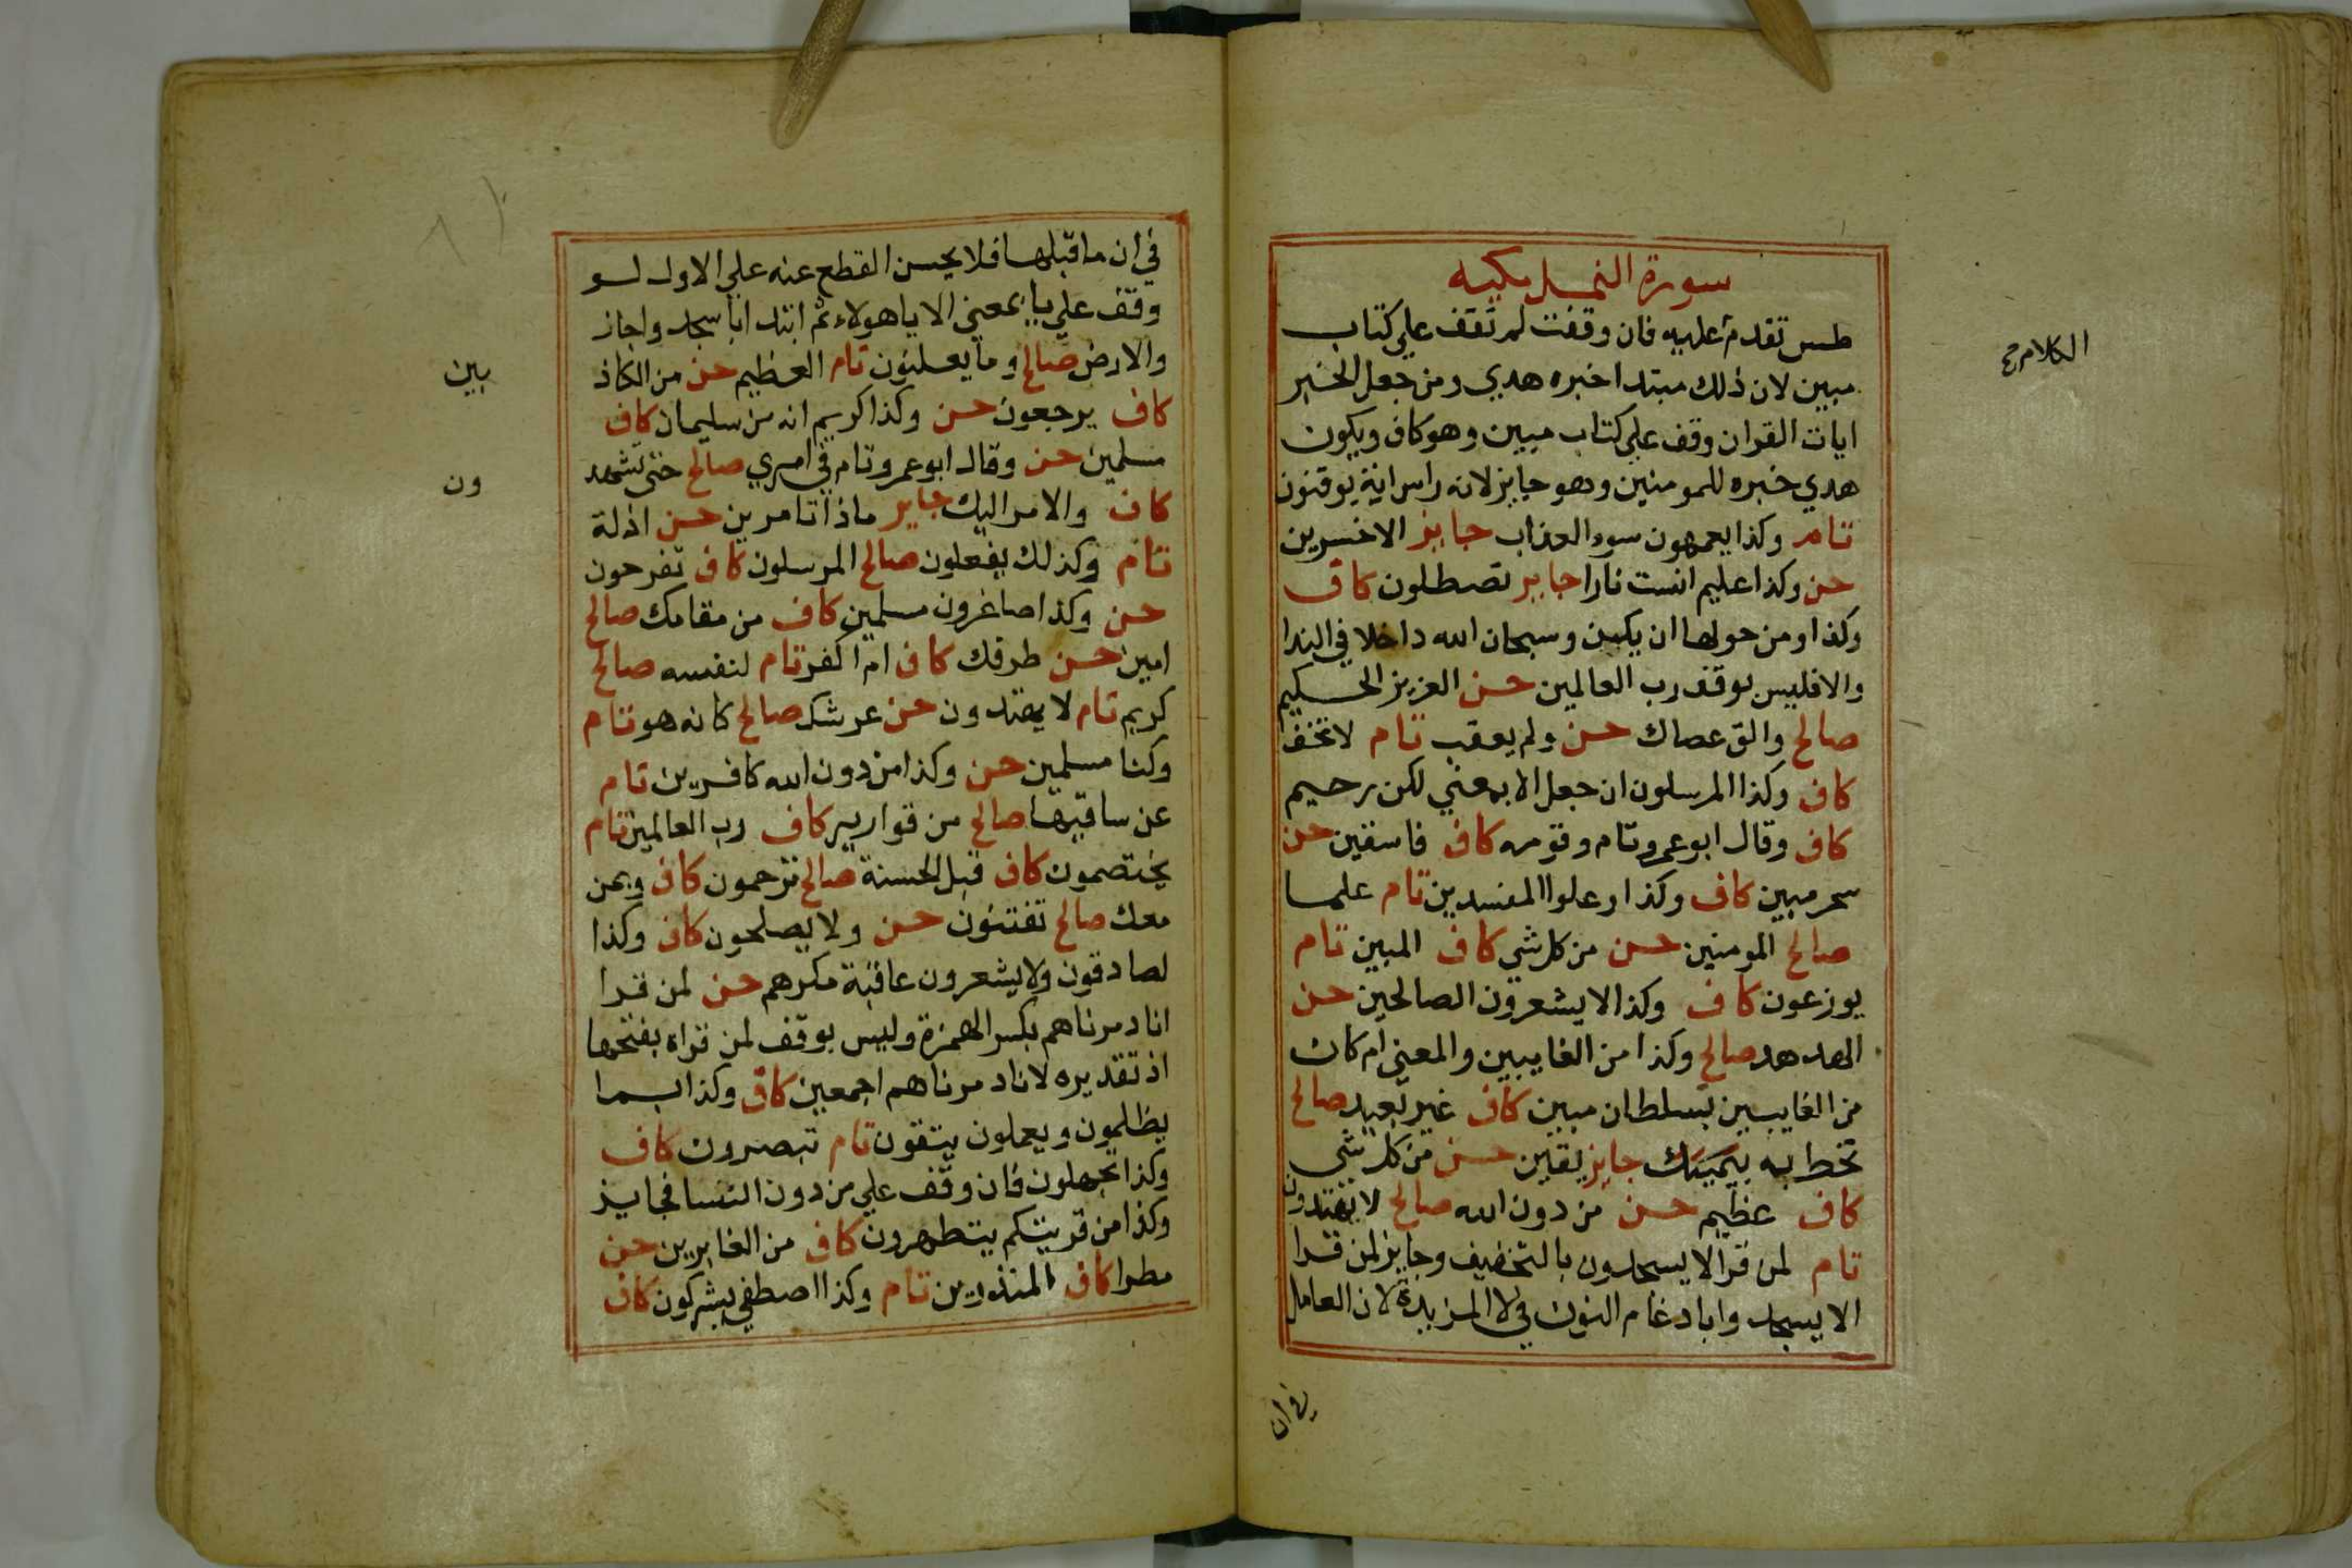 سورة النمل مكيه
طس تقدم عليه فان وقفت لم تقف على كتاب
الكلام صح
مبين لان ذلك مبتدا خبره هدي ومن جعل الخبر
ايات القران وقف علي كتاب مبين وهو كاف ويكون
هدي خبره للمومنين وهو جايز لانه راس اية يوقنون
تام وكذا يعمهون سوء العذاب جايز الاخسرين
حسن وكذا عليم انست نارا جايز تصطلون كاف
وكذا ومن حولها ان يكن وسبحان الله داخلا في الندا
والا فليس بوقف رب العالمين حسن العزيز الحكيم
صالح والق عصاك حسن ولم يعقب تام لا تخف
كاف وكذا المرسلون ان جعل الا بمعني لكن رحيم
كاف وقال ابو عمرو تام وقومه كاف فاسقين حسن
سحر مبين كاف وكذا وعلوا المفسدين تام علما
صالح المومنين حسن من كل شي كاف المبين تام
يوزعون كاف وكذا لا يشعرون الصالحين حسن
الهدهد صالح وكذا من الغايبين والمعني ام كان
من الغايبين بسلطان مبين كاف غير بعيد صالح
تحط به جايز يقين حسن من كل شي
كاف عظيم حسن من دون الله صالح لا يهتدون
تام لمن قرا الا يسجدون بالتخفيف وجايز لمن قرا
الا يسجدوا بادغام النون في لا المزيدة لان العامل
في ان
في ان ما قبلها فلا يحسن القطع عنه علي الاول لو
وقف علي يا بمعني الا يا هولاء ثم ابتدا باسجد واجاز
والارض صالح وما يعلنون تام العظيم حسن من الكاذ
بين
كاف يرجعون حسن وكذا كريم انه من سليمان كاف
مسلمين حسن وقال ابو عمرو تام في امري صالح حتي تشهد
ون
كاف والامر اليك جايز ماذا تامرين حسن اذلة
تام وكذلك يفعلون صالح المرسلون كاف تفرحون
حسن وكذا صاغرون مسلمين كاف من مقامك صالح
امين حسن طرفك كاف ام اكفر تام لنفسه صالح
كريم تام لا يهتدون حسن عرشك صالح كانه هو تام
وكنا مسلمين حسن وكذا من دون الله كافرين تام
عن ساقيها صالح من قوارير كاف رب العالمين تام
يختصمون كاف قبل الحسنة صالح ترحمون كاف وبمن
معك صالح تفتنون حسن ولا يصلحون كاف وكذا
لصادقون ولا يشعرون عاقبة مكرهم حسن لمن قرا
انا دمرناهم بكسر الهمزة وليس بوقف لمن قراه بفتحها
اذ تقديره لانا دمرناهم اجمعين كاف وكذا بما
يظلمون ويعملون يتقون تام تبصرون كاف
وكذا تجهلون فان وقف علي من دون النسا فجايز
وكذا من قريتكم يتطهرون كاف من الغابرين حسن
مطرا كاف المنذرين تام وكذا اصطفي يشركون كاف